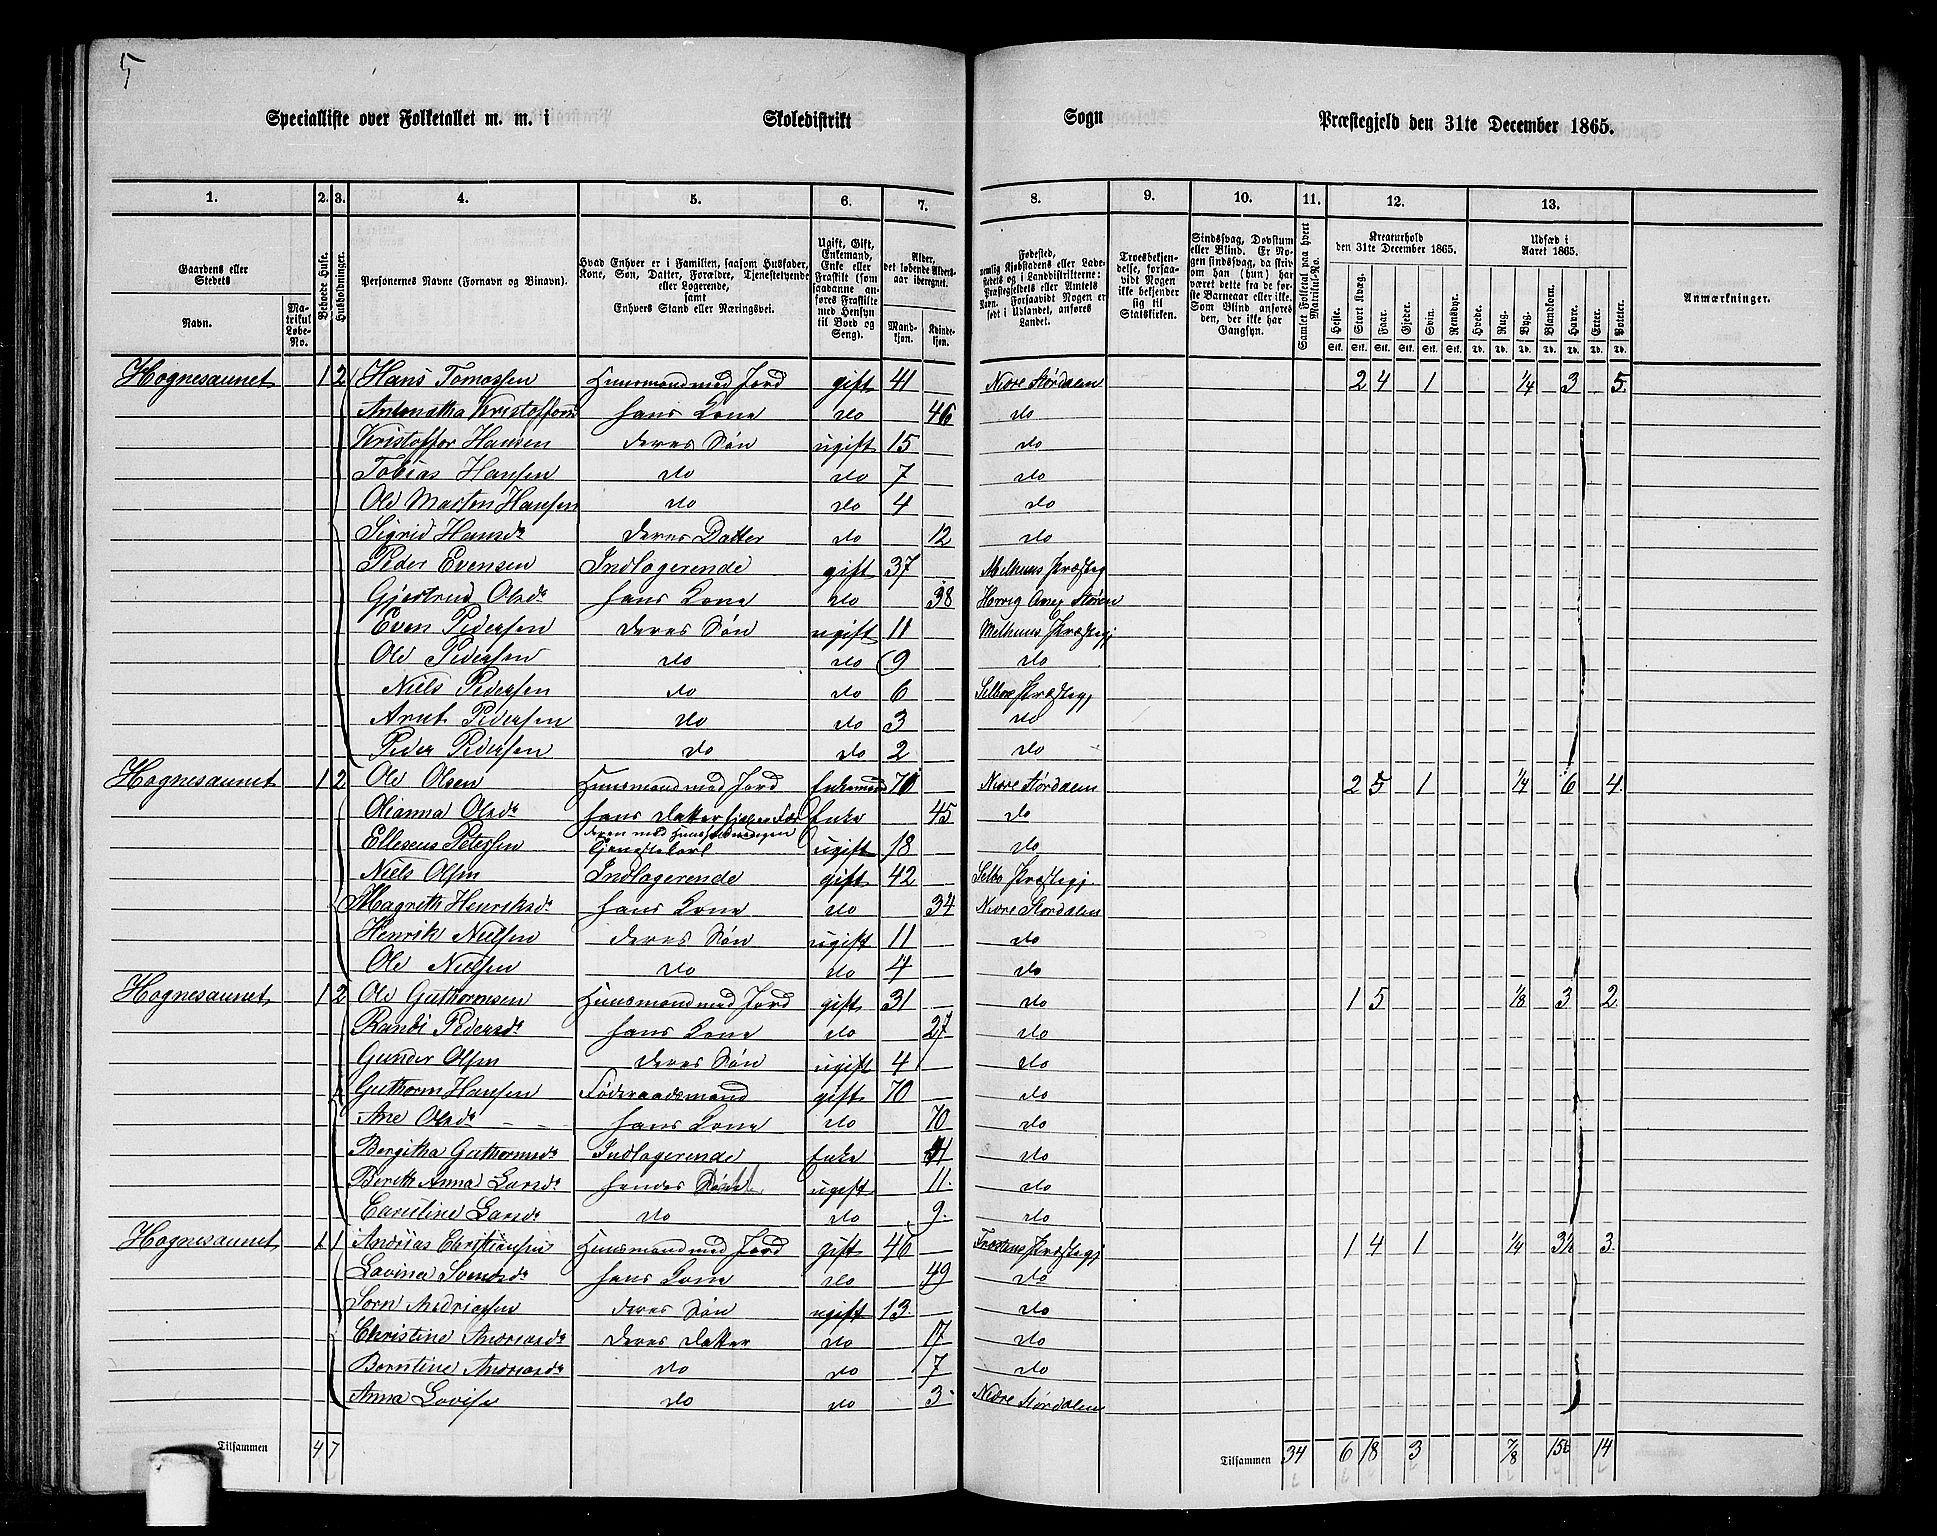 5
Specialliste over Folketallet m. m. i Skoledistrikt Sogn Præstegjeld den 31te December 1865.
1. 2. 3. 4. 5. 6. 7. 8. 9. 10. 11. 12. 13.
Gaardens eller Stedets Navn. Matrikul Løbe-No. Beboede Huse. Husholdninger. Personernes Navne (Fornavn og Binavn). Hvad Enhver er i Familien, saasom Husfader, Kone, Søn, Datter, Forældre, Tjenestetyende eller Logerende, samt Enhvers Stand eller Næringsvei. Ugift, Gift, Enkemand, Enke eller Fraskilt (saadanne anføres Fraskilte med Hensyn til Bord og Seng). Alder, det løbende Alders-aar iberegnet. Mandkjøn. Kvindekjøn. Fødested, nemlig Kjøbstadens eller Ladestedets og i Landdistrikterne: Præstegjeldets eller Amtets Navn. Forsaavidt Nogen er født i Udlandet, anføres Landet. Troesbekjendelse, forsaavidt Nogen ikke bekjender sig til Statskirken. Sindssvag, Døvstum eller Blind. Er Nogen sindssvag, da skriv om han (hun) har været dette fra de første Barneaar eller ikke. Som Blind anføres den, der ikke har Gangsyn. Samlet Folketal paa hvert Matrikul-No. Kreaturhold den 31te December 1865. Heste. Stort Kvæg. Faar. Gjeder. Svin. Rensdyr. Udsæd i Aaret 1865. Hvede. Rug. Byg. Blandkorn. Havre. Erter. Poteter. Anmærkninger.
Stk. Stk. Stk. Stk. Stk. Stk. Td. Td. Td. Td. Td. Td. Td.
Hognesaunet 1 2 Hans Tomassen Huusmand med Jord gift 41 Nedre Størdalen 2 4 1 1/4 3 5
Hans Kone do 46 do
Kristoffer Hansen deres Søn ugift 15 do
Tobias Hansen do do 7 do
Ole Morten Hansen do do 4 do
Sigrid Hansdr deres Datter do 12 do
Peder Evensen Indlogerende gift 37 Melhuus Præsteg
Gjertrud Olsdr hans Kone do 38 Størен
Even Pedersen deres Søn ugift 11 Melhuus Præstegj
Ole Pedersen do do 9 do
Niels Pedersen do do 6 Selboe Præstegj
Arnt Pedersen do do 3 do
Peder Pedersen do do 2 do
Hognesaunet 1 2 Ole Olsen Huusmand med Jord Enkemand 70 Nedre Størdalen 2 5 1 1/4 6 4
Olianna Olsdr hans Datter hjelper Faderen med Huusbestyringen Enke 45 do
Elleseus Petersen ugift 18 do
Niels Olsen Indlogerende gift 42 Selbo Præstegj.
Magreth Henriksdr hans Kone do 34 Nedre Størdalen
Henrik Nielsen deres Søn ugift 11 do
Ole Nielsen do do 4 do
Hognesaunet 1 2 Ole Guthormsen Huusmand med Jord gift 31 do 1 5 1/8 3 2
Randi Pedersdr hans Kone do 27 do
Gunder Olsen deres Søn ugift 4 do
Guthorm Hansen Føderaadsmand gift 70 do
Ane Olsdr hans Kone do 70 do
Bergitha Guthormsdr Indlogerende Enke 41 do
Bereth Anna Larsdr hendes ugift 11. do
Caristine Larsdr do do 9. do
Hognesaunet 1 1 Andrias Christiansen Huusmand med Jord gift 46 Frostens Præstegj 1 4 1 1/4 3½ 3.
Lovina Svendsdr hans Kone do 49 do
Sorn Andriassen deres Søn ugift 13. do
Christine Andriasdr deres Datter do 17 do
Berntine Andriasdr do do 7 do
Anna Lovise do do 3 Nedre Størdalen
Tilsammen 4 7 Tilsammen 34 6 18 3 7/8 15½ 14